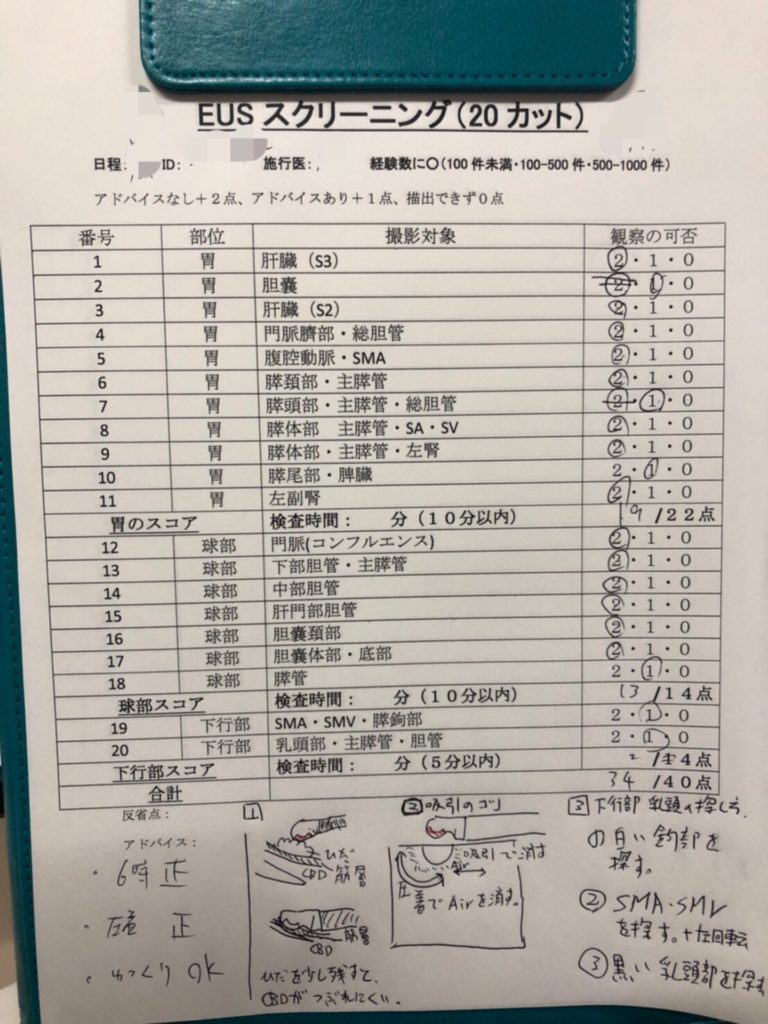 EUS スクリーニング(20 カット)
日程: ID: 施行医: 経験数に〇(100 件未満・100-500 件・500-1000 件)
アドバイスなし+2点、アドバイスあり+1点、描出できず0点
番号 部位 撮影対象 観察の可否
1 胃 肝臓(S3) 2・1・0
2 胃 胆嚢 2 1・0
3 胃 肝臓(S2) 2・1・0
4 胃 門脈臍部・総胆管 2・1・0
5 胃 腹腔動脈・SMA 2・1・0
6 胃 膵頚部・主膵管 2・1・0
7 胃 膵頭部・主膵管・総胆管 2・1・0
8 胃 膵体部 主膵管・SA・SV 2・1・0
9 胃 膵体部・主膵管・左腎 2・1・0
10 胃 膵尾部・脾臓 2・1・0
11 胃 左副腎 2・1・0
胃のスコア 検査時間: 分(10分以内) 19 /22点
12 球部 門脈(コンフルエンス) 2・1・0
13 球部 下部胆管・主膵管 2・1・0
14 球部 中部胆管 2・1・0
15 球部 肝門部胆管 2・1・0
16 球部 胆嚢頚部 2・1・0
17 球部 胆嚢体部・底部 2・1・0
18 球部 膵管 2・1・0
球部スコア 検査時間: 分(10分以内) 13 /14点
19 下行部 SMA・SMV・膵鉤部 2・1・0
20 下行部 乳頭部・主膵管・胆管 2・1・0
下行部スコア 検査時間: 分(5分以内) 2 /4点
合計 34 /40点
反省点:
アドバイス:
・6時 正
・圧着 正
・ゆっくり OK
1
ひだ
筋層
CBD
筋層
CBD
ひだを少し残すと、
CBDがつぶれにくい.
2 吸引のコツ
吸引で消す
Air
圧着でAirを消す。
3 下行部 乳頭の探し方
① 白い鈎部を
探す。
② SMA・SMV
を探す。+左回転
③ 黒い乳頭部を探す